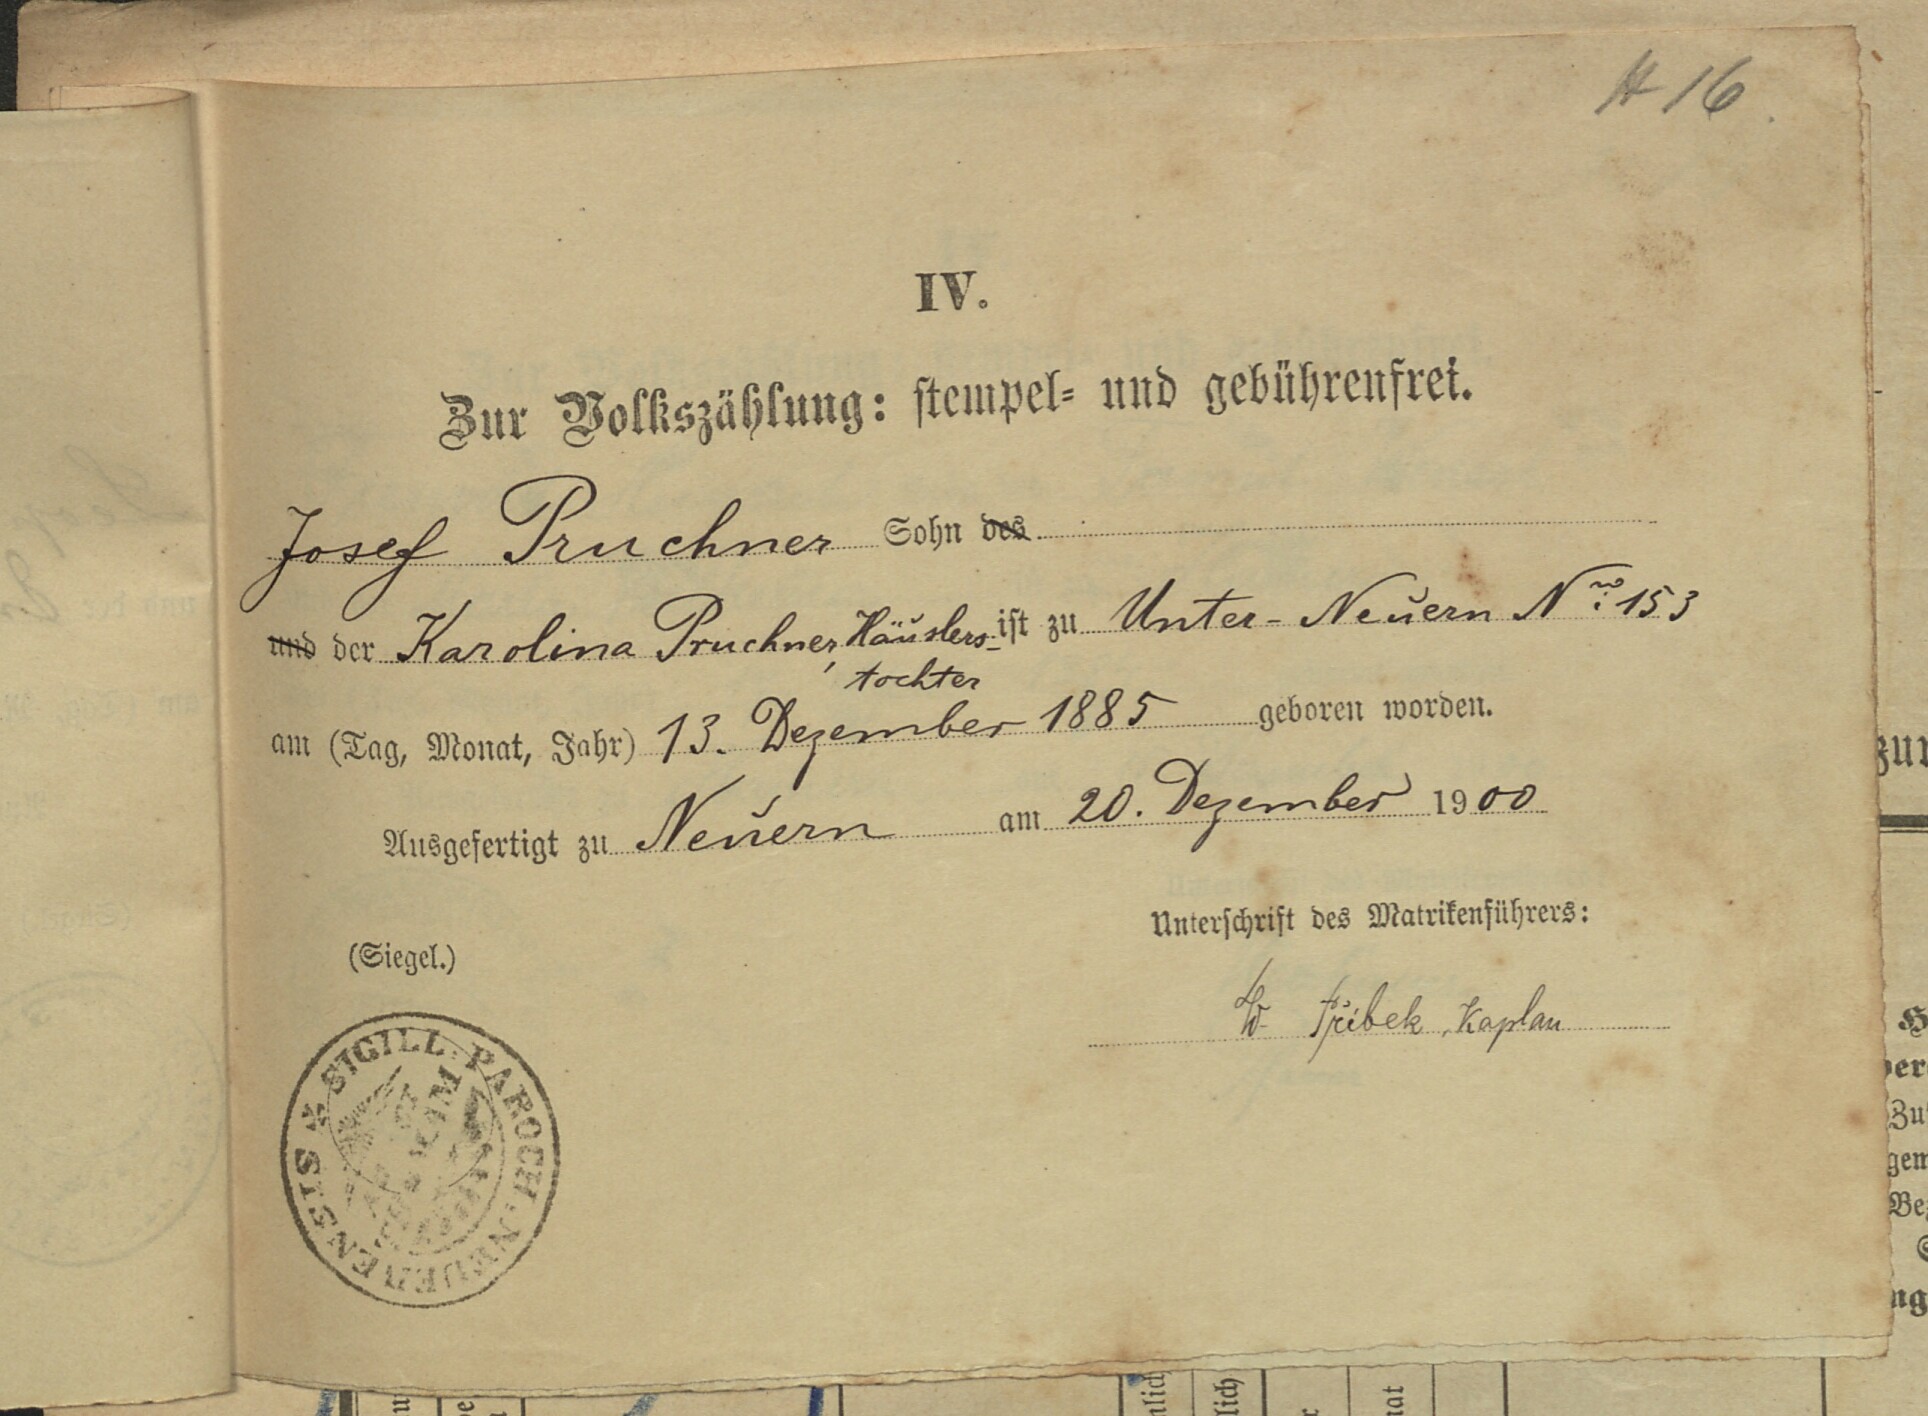 H 16.
IV.
Zur Volkszählung: stempel- und gebührenfrei.
Josef Pruchner Sohn des
und der Karolina Pruchner, Häuslers- ist zu Unter-Neuern Nro. 153
tochter
am (Tag, Monat, Jahr) 13. Dezember 1885 geboren worden.
Ausgefertigt zu Neuern am 20. Dezember 1900
Unterschrift des Matrikenführers:
(Siegel.)
Přibek, Kaplan
* SIGILL. PAROCH. NEUERNENSIS
zur